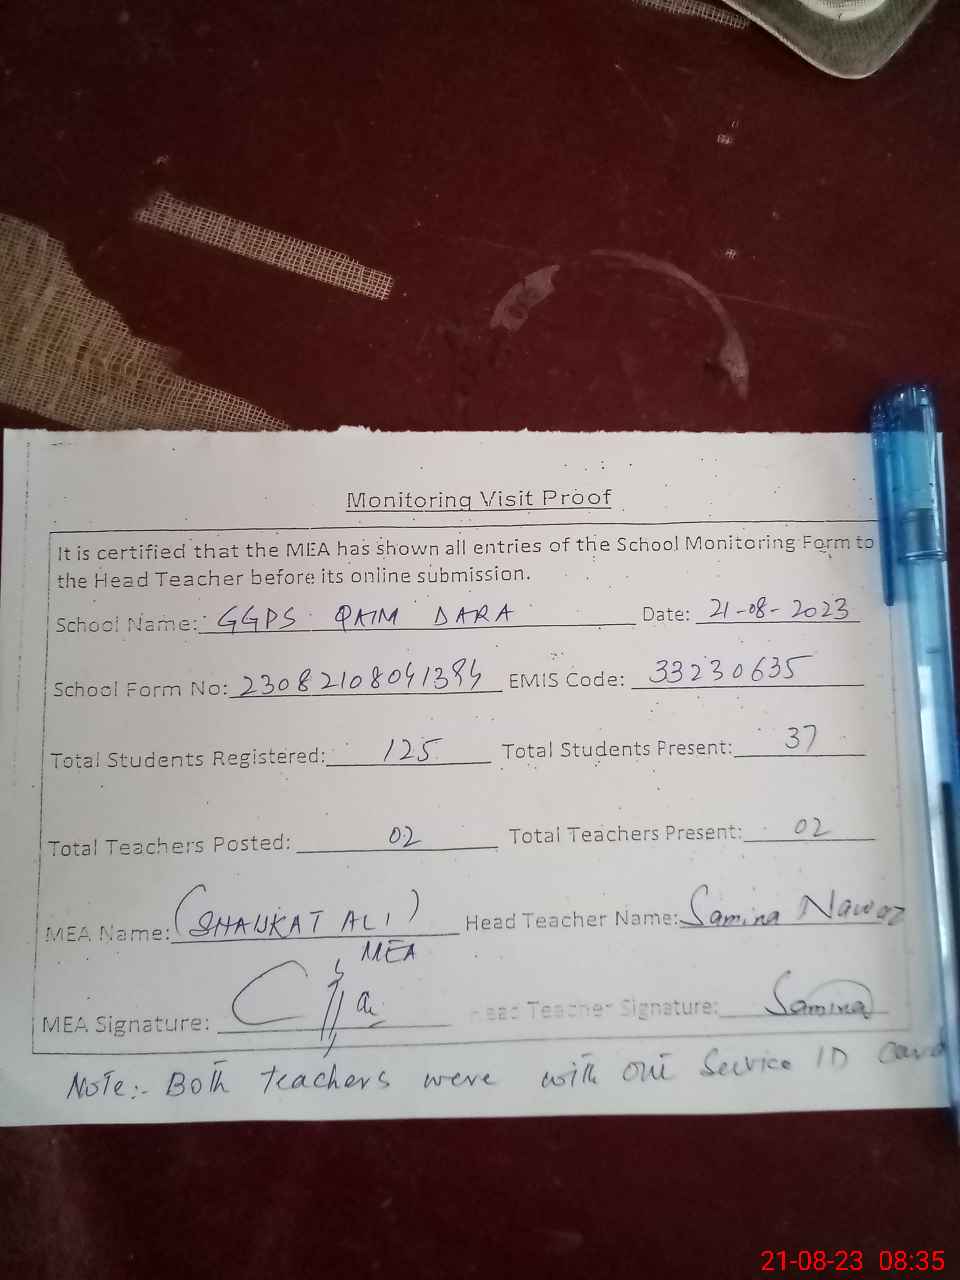 Monitoring Visit Proof
It is certified that the MEA has shown all entries of the School Monitoring Form to
the Head Teacher before its online submission.
School Name: GGPS QAIM DARA Date: 21-08-2023
School Form No: 23082108041384 EMIS Code: 33230635
Total Students Registered: 125 Total Students Present: 37
Total Teachers Posted: 02 Total Teachers Present: 02
MEA Name: (SHAUKAT ALI) Head Teacher Name: Samina Nawaz
MEA
MEA Signature: Head Teacher Signature: Samina
Note:- Both teachers were with out Service ID Card
21-08-23 08:35